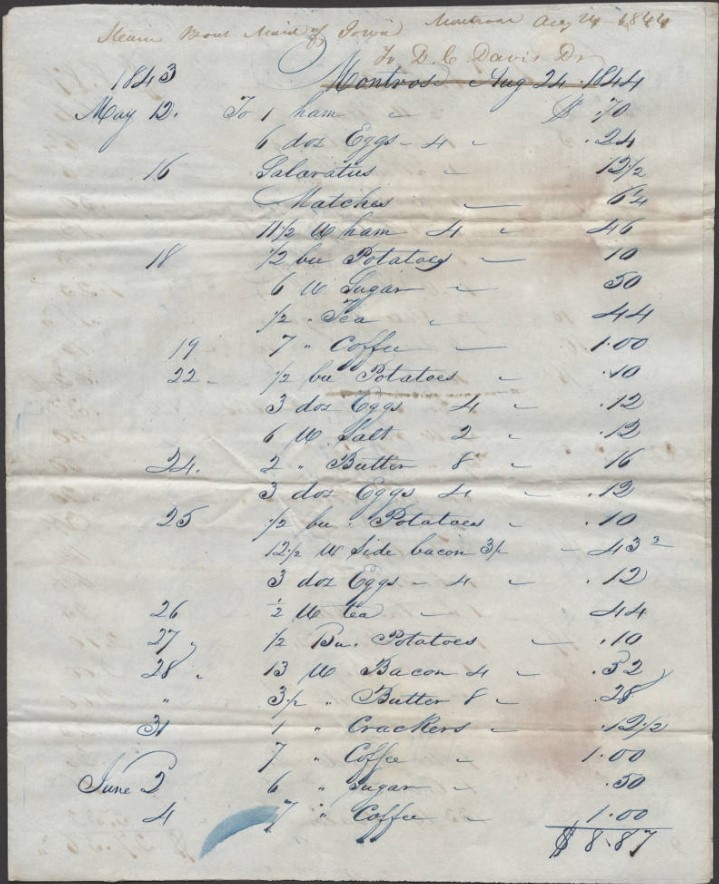 Steam Boat Maid of Iowa Montrose Aug 24 1844
To D. C. Davis Dr
1843 Montros Aug 24. 1844
May 12. To 1 ham " $ .70
6 doz Eggs - 4 " .24
16 Salaratus 12 1/2
Matches " 6 1/4
11 1/2 lb ham 4 " 46
18 1/2 bu Potatoes " 10
6 lb Sugar " 50
1/2 " Tea " 44
19 - 7 " Coffee " 1.00
22 - 1/2 bu Potatoes " .10
3 doz Eggs 4 " .12
6 lb Salt 2 " .12
24. 2 " Butter 8 " 16
3 doz Eggs 4 " .12
25 1/2 bu. Potatoes " .10
12 1/2 lb Side bacon 3 1/2 " 43 2
3 doz Eggs - 4 " .12
26 1/2 lb tea " 44
27, 1/2 Bu. Potatoes " .10
28 " 13 lb Bacon 4 " .52
" 3 1/2 " Butter 8 " .28
31 1 " Crackers " .12 1/2
7 " Coffee " 1.00
June 2 6 " Sugar " .50
4 7 " Coffee " 1.00
$ 8.87